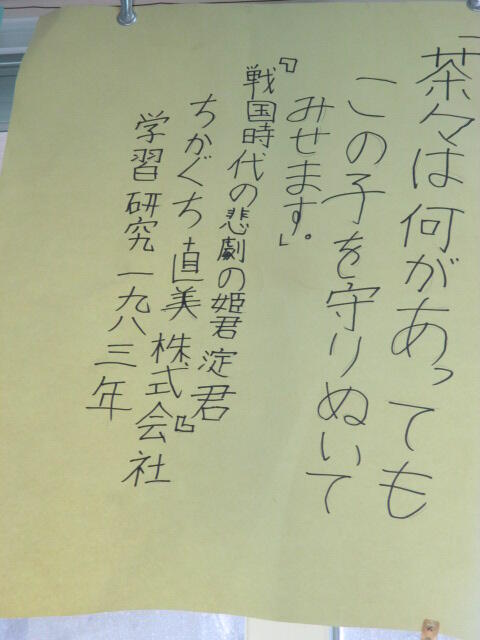 「茶々は何があっても
この子を守りぬいて
みせます。」
『戦国時代の悲劇の姫君 淀君』
ちかぐち 直美 株式会社
学習研究 一九八三年